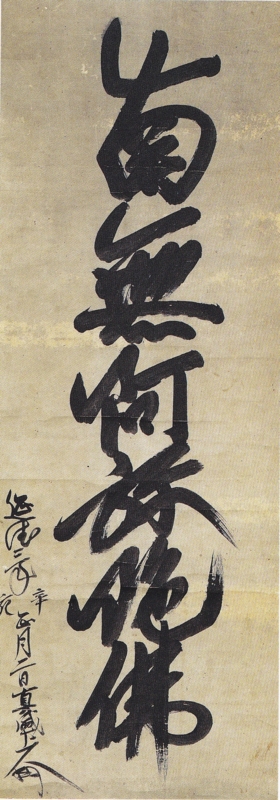 南無阿弥陀佛
延徳三年
辛
正月二日真盛上人